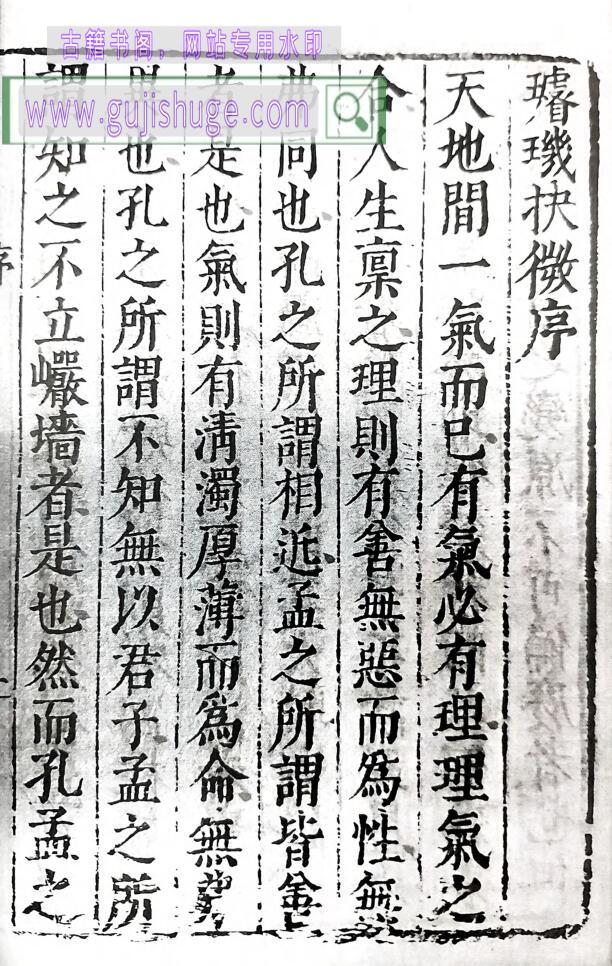 古籍书阁，网站专用水印
www.gujishuge.com
璿璣抉微序
天地間一氣而已有氣必有理理氣之
合人生禀之理則有善無惡而為性無
弗同也孔之所謂相近孟之所謂皆善
者是也氣則有清濁厚薄而為命無
是也孔之所謂不知無以君子孟之所
謂知之不立巖墻者是也然而孔孟之
序